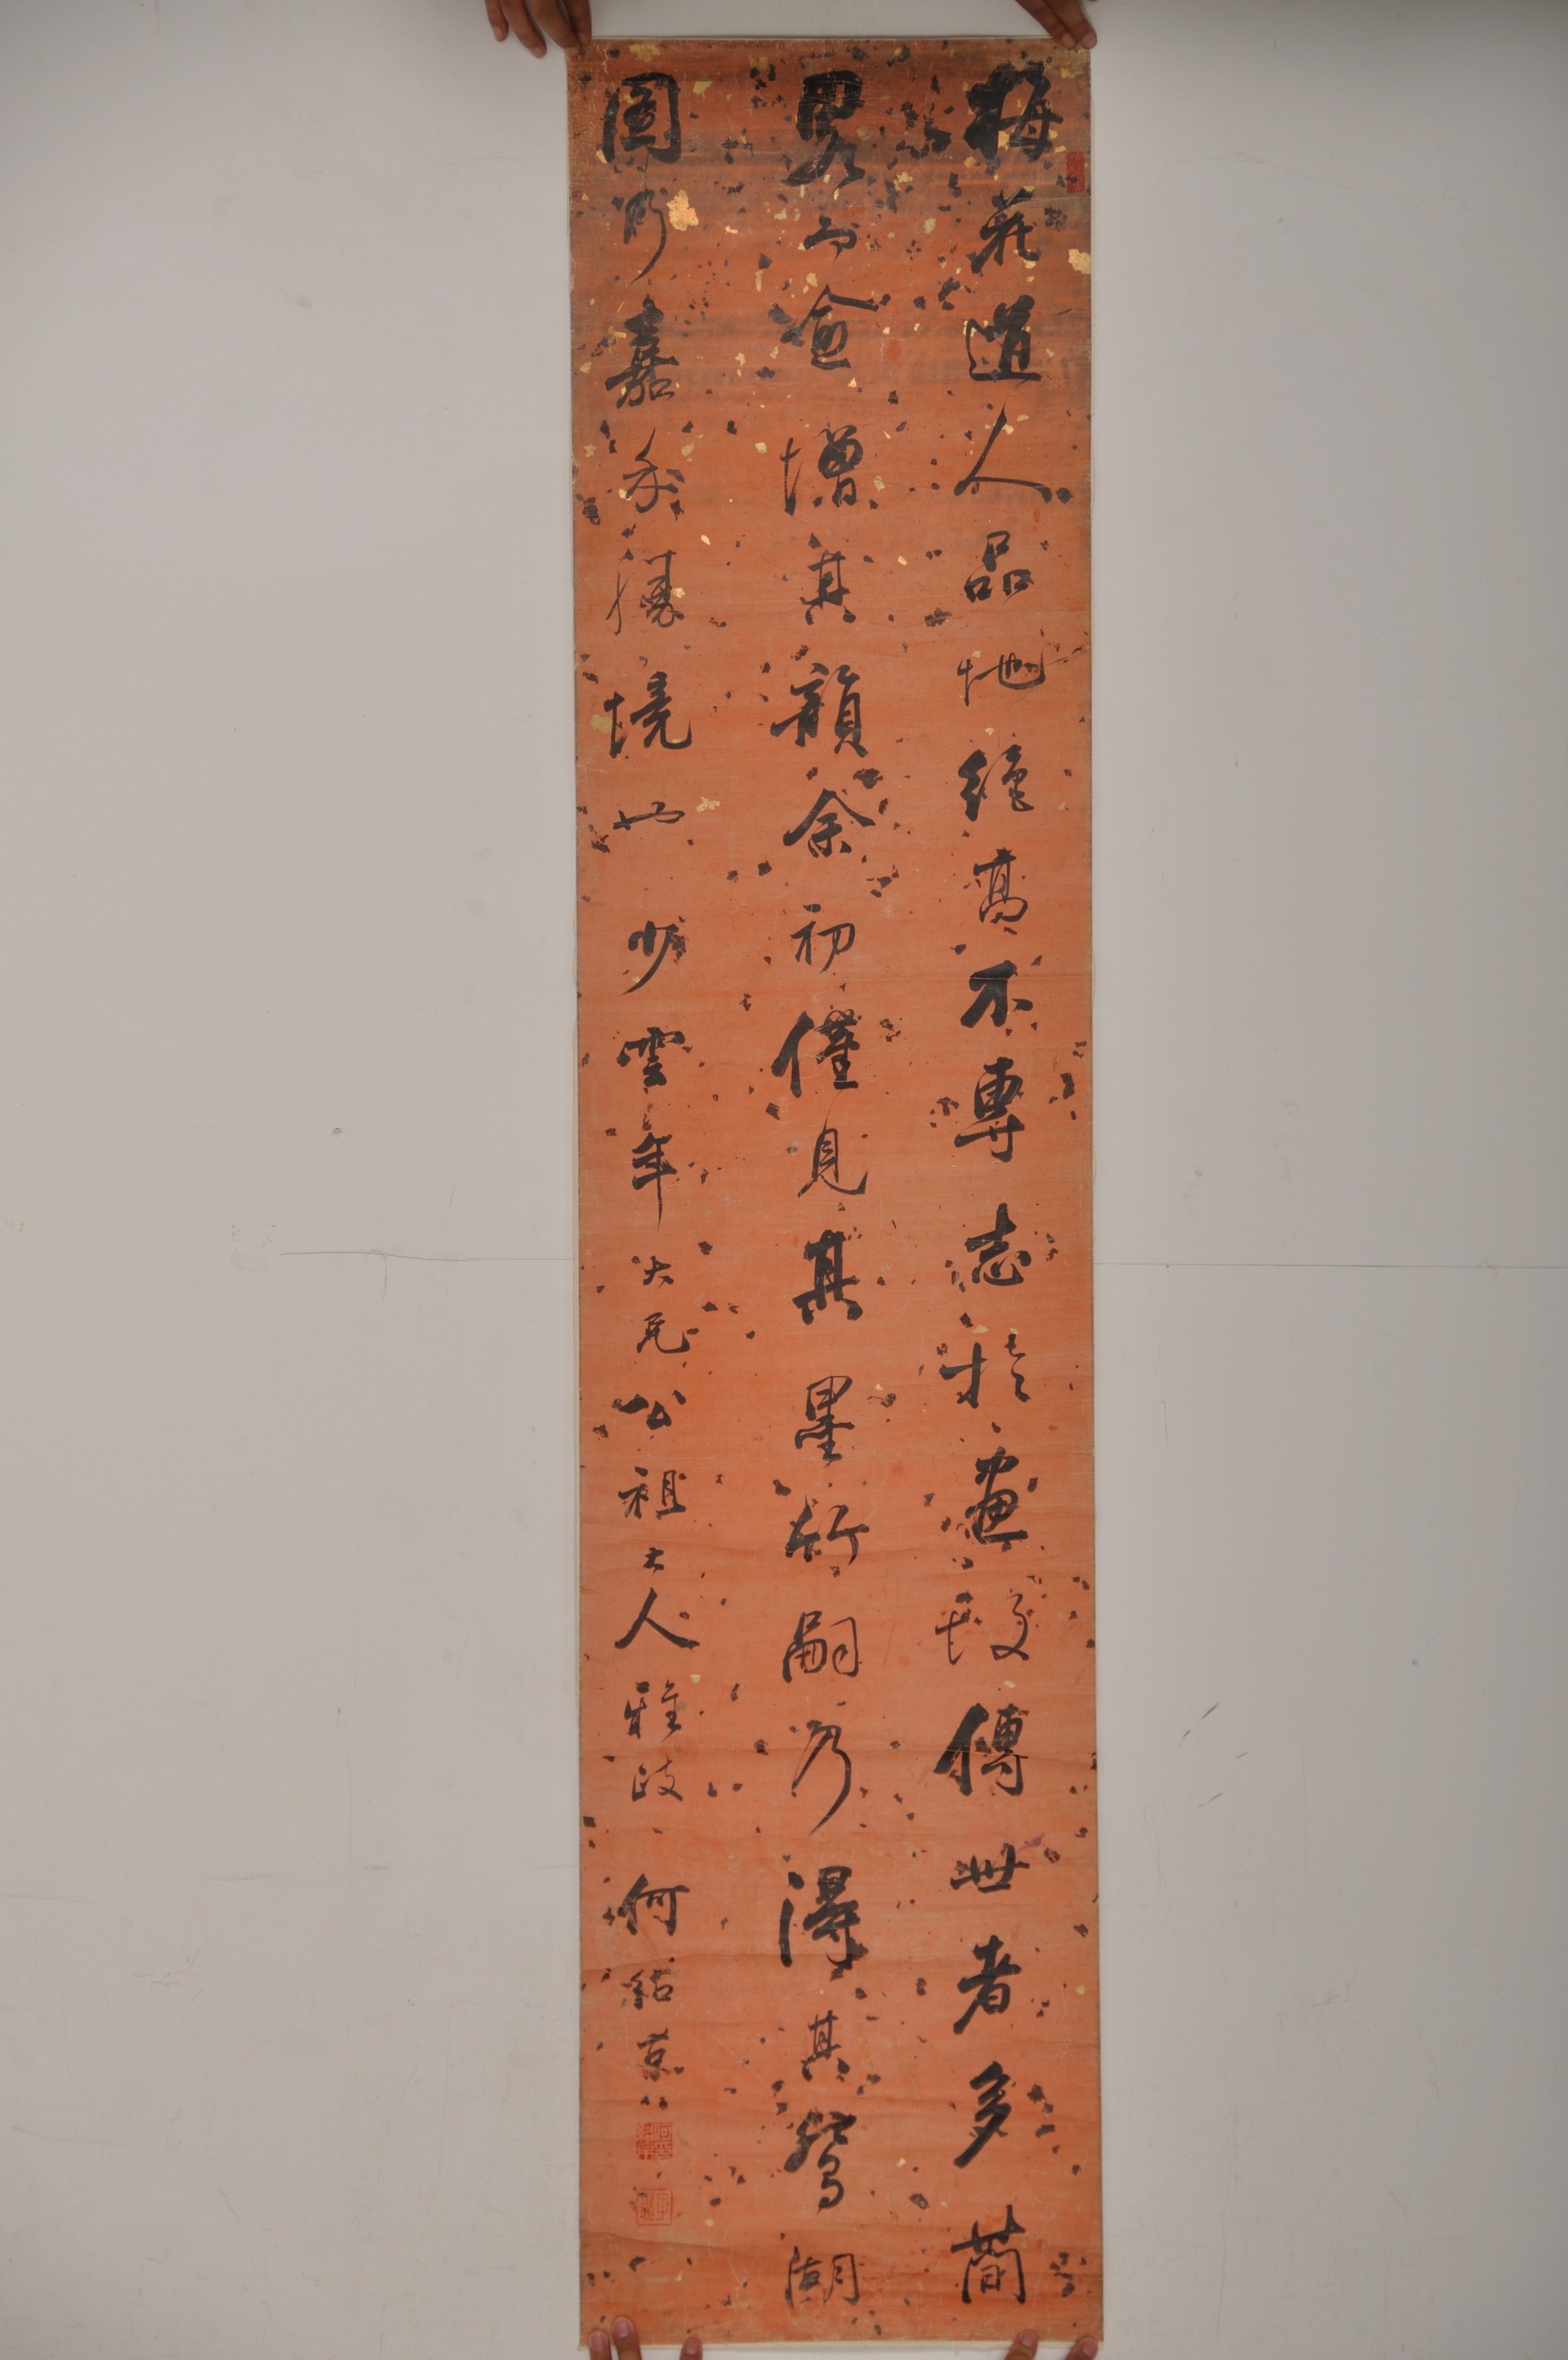 梅花道人品地絕高不專志於畫故傳世者多簡
畧而愈增其韻余初僅見其墨竹嗣乃得其鴛湖
圖乃嘉禾勝境也 少雲年大兄公祖大人雅政 何紹京